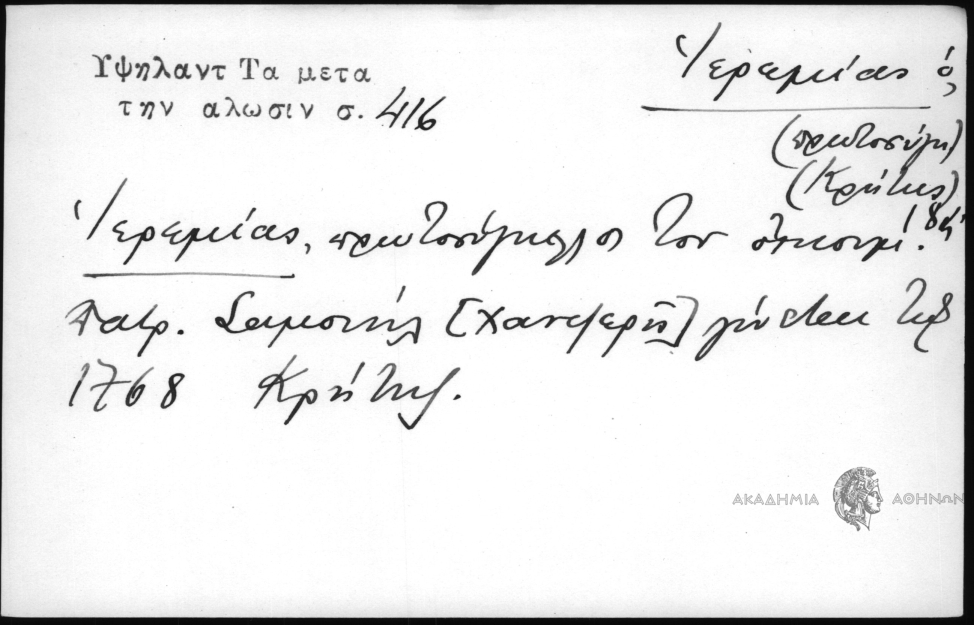 Υψηλαντ Τα μετα
την αλωσιν σ. 416
Ἱερεμίας ὁ
(πρωτοσύγκ)
(Κρήτης)
18ῃ
Ἱερεμίας, πρωτοσύγκελλος του οἰκουμ.
πατρ. Σαμουήλ [Χαντζερῆ] γίνεται τῷ
1768 Κρήτης.
ΑΚΑΔΗΜΙΑ ΑΘΗΝΩΝ